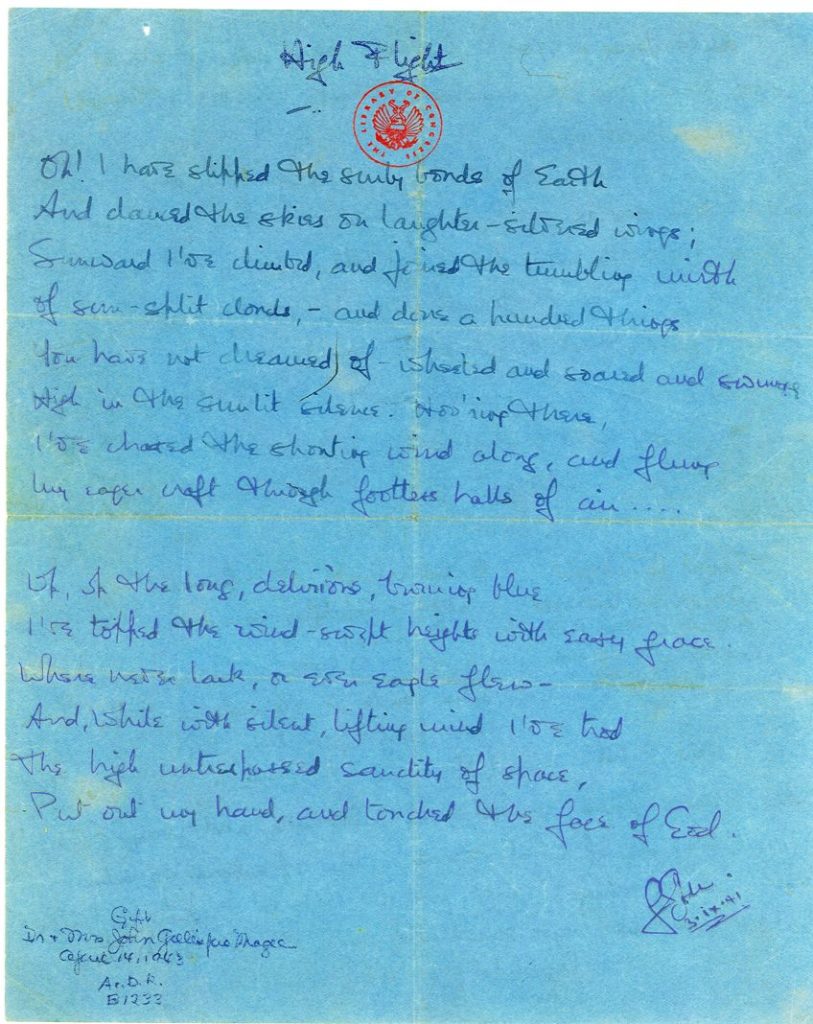 High Flight
THE LIBRARY OF CONGRESS
Oh! I have slipped the surly bonds of Earth
And danced the skies on laughter-silvered wings;
Sunward I've climbed, and joined the tumbling mirth
of sun-split clouds, - and done a hundred things
You have not dreamed of - wheeled and soared and swung
High in the sunlit silence. Hov'ring there,
I've chased the shouting wind along, and flung
my eager craft through footless halls of air.....
Up, up the long, delirious, burning blue
I've topped the wind-swept heights with easy grace.
Where never lark, or ever eagle flew-
And, while with silent, lifting mind I've trod
The high untrespassed sanctity of space,
Put out my hand, and touched the face of God.
3.ix.41
Gift
Dr + Mrs John Gillespie Magee
April 14, 1943
Ac.D.R.
E1233